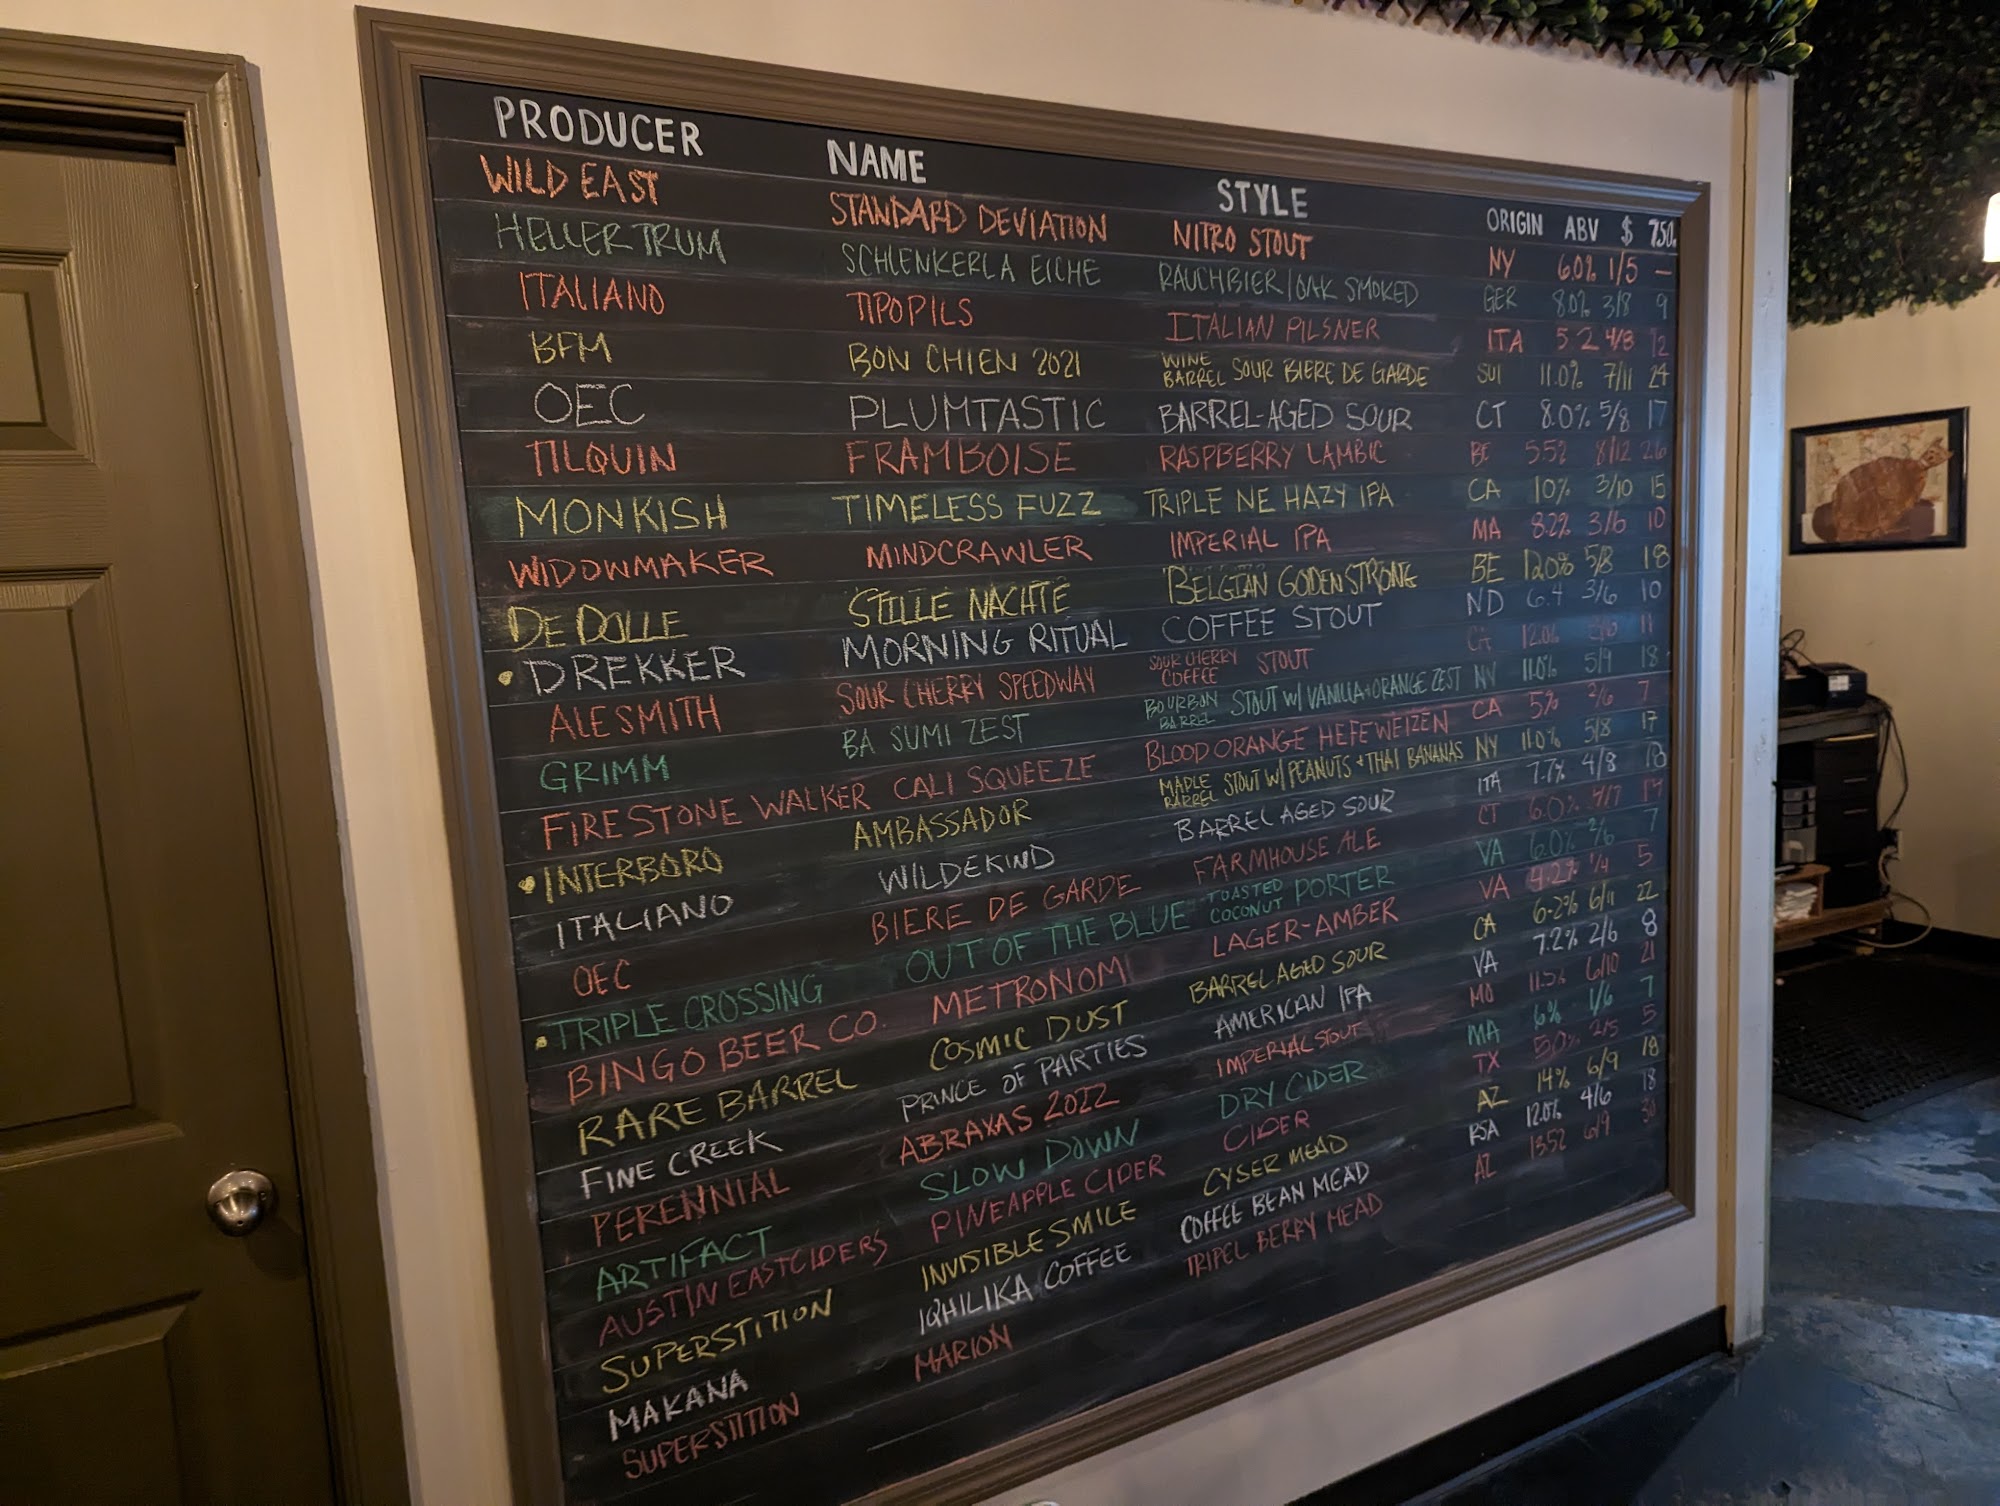 PRODUCER NAME STYLE ORIGIN ABV $ 750
WILD EAST STANDARD DEVIATION NITRO STOUT NY 6.0% 1/5 —
HELLER TRUM SCHLENKERLA EICHE RAUCHBIER/OAK SMOKED GER 8.0% 3/8 9
ITALIANO TIPOPILS ITALIAN PILSNER ITA 5.2 4/8 12
BFM BON CHIEN 2021 WINE BARREL SOUR BIERE DE GARDE SUI 11.0% 7/11 24
OEC PLUMTASTIC BARREL-AGED SOUR CT 8.0% 5/8 17
TILQUIN FRAMBOISE RASPBERRY LAMBIC BE 5.5% 8/12 26
MONKISH TIMELESS FUZZ TRIPLE NE HAZY IPA CA 10% 3/10 15
WIDOWMAKER MINDCRAWLER IMPERIAL IPA MA 8.2% 3/6 10
DE DOLLE STILLE NACHTE BELGIAN GODEN STRONG BE 12.0% 5/8 18
DREKKER MORNING RITUAL COFFEE STOUT ND 6.4 3/6 10
ALESMITH SOUR CHERRY SPEEDWAY SOUR CHERRY COFFEE STOUT 12.0% 11
GRIMM BA SUMI ZEST BOURBON BARREL STOUT W/ VANILLA + ORANGE ZEST NY 11.0% 5/9 18
FIRESTONE WALKER CALI SQUEEZE BLOOD ORANGE HEFEWEIZEN CA 5% 2/6 7
INTERBORO AMBASSADOR MAPLE BARREL STOUT W/ PEANUTS + THAI BANANAS NY 11.0% 5/8 17
ITALIANO WILDEKIND BARREL AGED SOUR ITA 7.7% 4/8 18
OEC BIERE DE GARDE FARMHOUSE ALE CT 6.0% 4/7 14
TRIPLE CROSSING OUT OF THE BLUE TOASTED COCONUT PORTER VA 6.0% 2/6 7
BINGO BEER CO. METRONOM LAGER-AMBER VA 4.2% 1/4 5
RARE BARREL COSMIC DUST BARREL AGED SOUR CA 6.2% 6/11 22
FINE CREEK PRINCE OF PARTIES AMERICAN IPA VA 7.2% 2/6 8
PERENNIAL ABRAXAS 2022 IMPERIAL STOUT MO 11.5% 6/10 21
ARTIFACT SLOW DOWN DRY CIDER MA 6% 1/6 7
AUSTIN EASTCIDERS PINEAPPLE CIDER CIDER TX 5.0% 2/5 5
SUPERSTITION INVISIBLE SMILE CYSER MEAD AZ 14% 6/9 18
MAKANA IQHILIKA COFFEE COFFEE BEAN MEAD RSA 12.0% 4/6 18
SUPERSTITION MARION TRIPEL BERRY MEAD AZ 13.5% 6/9 30